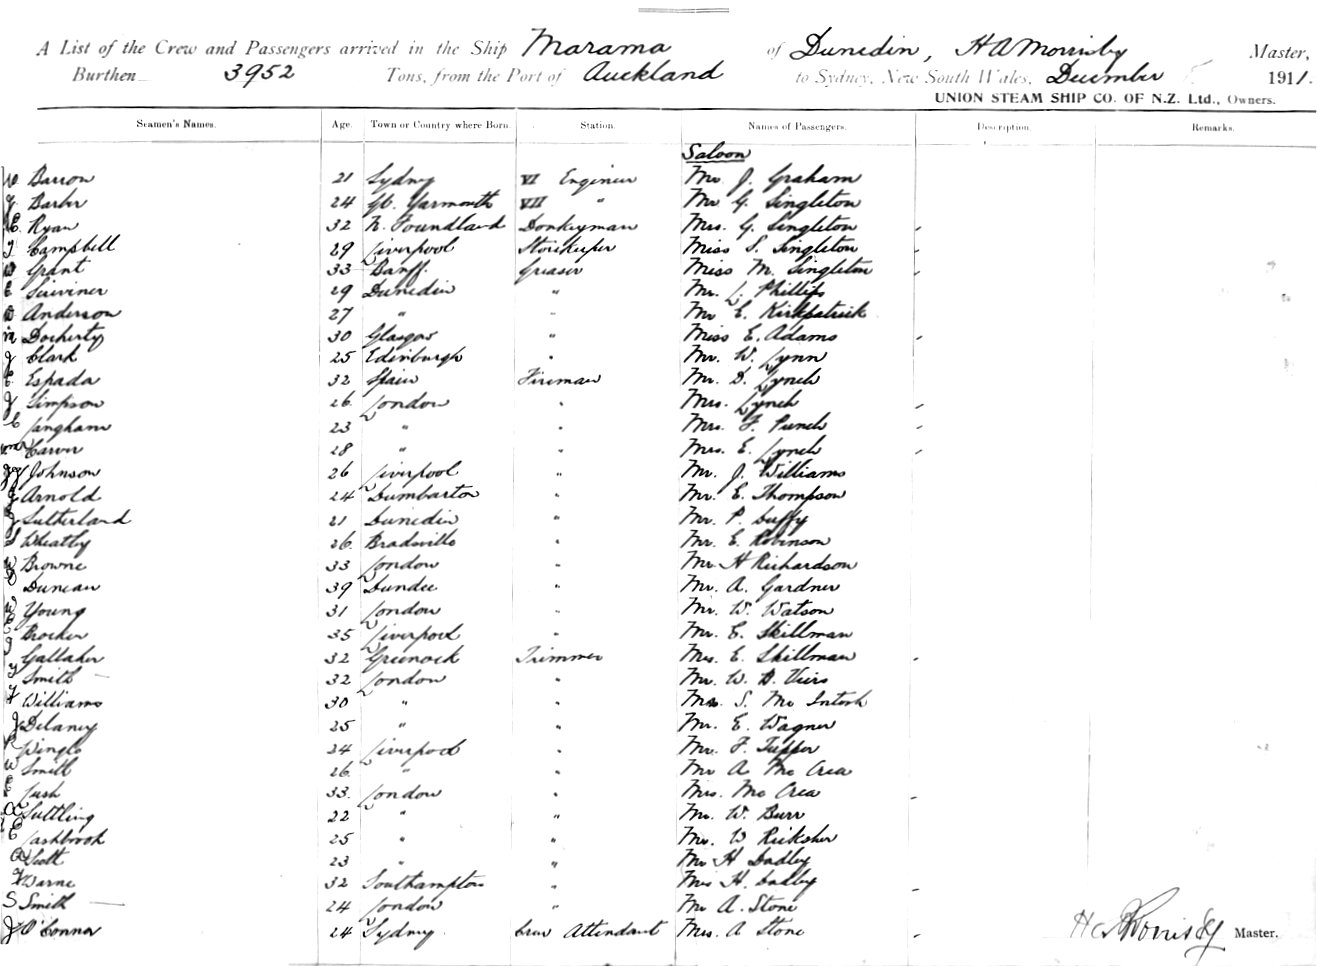 A List of the Crew and Passengers arrived in the Ship Marama of Dunedin, H A Morrisby Master,
Burthen 3952 Tons, from the Port of Auckland to Sydney, New South Wales, December 1911.
UNION STEAM SHIP CO. OF N.Z. Ltd., Owners.
Seamen's Names. Age. Town or Country where Born. Station. Names of Passengers. Description. Remarks.
Saloon
Barron 21 Sydney VI Engineer Mr J. Graham
J Barber 24 Gt. Yarmouth VII " Mr G. Singleton
E Ryan 32 N. Foundland Donkeyman Mrs. G. Singleton
J Campbell 29 Liverpool Storekeeper Miss S. Singleton
Grant 33 Banff. Greaser Miss M. Singleton
E Scriviner 29 Dunedin " Mr. L. Phillips
D Anderson 27 " " Mr E. Kirkpatrick
M Docherty 30 Glasgow " Miss E. Adams
J Clark 25 Edinburgh " Mr. W. Lynn
Espada 32 Spain Fireman Mr. D. Lynch
J Simpson 26 London " Mrs. Lynch
C Langham 23 " " Mrs. F. Punch
Carver 28 " " Mrs. E. Lynch
Johnson 26 Liverpool " Mr. J. Williams
J Arnold 24 Dumbarton " Mr. E. Thompson
J Sutherland 21 Dunedin " Mr. P. Duffy
S Wheatley 26 Bradsville " Mr. E. Robinson
W Browne 33 London " Mr H Richardson
Duncan 39 Dundee " Mr. A. Gardner
Young 31 London " Mr. W. Watson
Crocker 35 Liverpool " Mr. E. Skillman
J Gallaher 32 Greenock Trimmer Mrs E. Skillman
Smith 32 London " Mr. W. D. Viers
Williams 30 " " S. Mc Intosh
J Delaney 25 " " Mr. E. Wagner
R Pingle 24 Liverpool " Mr. F. Tupper
W Smith 26 " " Mr A Mc Crea
Lush 33. London " Mrs. Mc Crea
Suttling 22 " " Mr. W. Burr
E Lashbrook 25 " " W Ricksher
A Scott 23 " " Mr H Dadley
Warne 32 Southampton " Mrs H. Dadley
S Smith 24 London " Mr A. Stone
J O'Connor 24 Sydney Crew Attendant Mrs. A Stone
H A Morrisby Master.